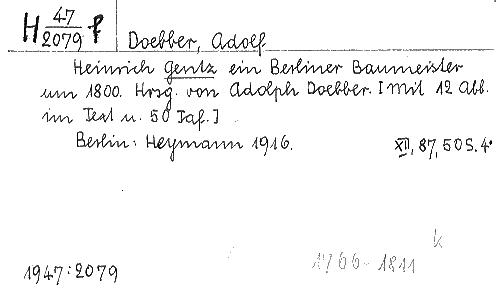 H 47/2079 f
Doebber, Adolf
Heinrich Gentz ein Berliner Baumeister
um 1800. Hrsg. von Adolph Doebber. [Mit 12 Abb.
im Text u. 50 Taf.]
Berlin: Heymann 1916. XII, 87, 50 S. 4°
k
1947:2079 1766-1811